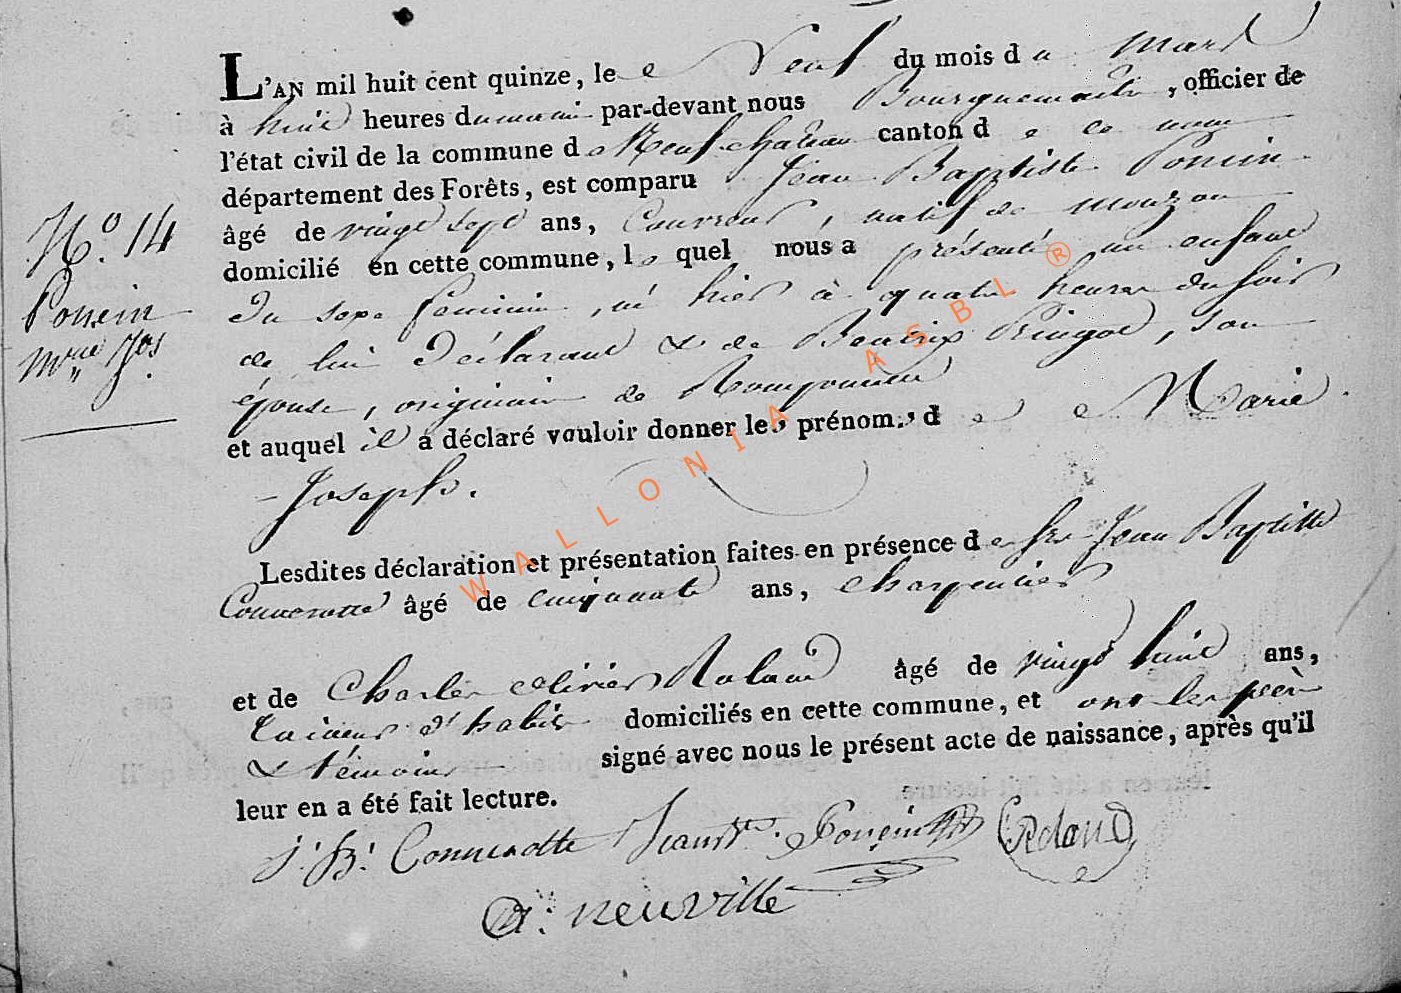 L'AN mil huit cent quinze, le Neuf du mois de Mars
à huit heures du matin par-devant nous Bourguemaitre, officier de
l'état civil de la commune de Neufchateau canton d e ce nom
département des Forêts, est comparu Jean Baptiste Poncin
âgé de vingt sept ans, Couvreur, natif de mouzon
domicilié en cette commune, le quel nous a présenté un enfant
du sexe feminin, né hier à quatre heures du soir
de lui Déclarant & de Beatrix Pringot, son
épouse, originaire de
et auquel il a déclaré vouloir donner les prénoms de Marie
Joseph.
Lesdites déclaration et présentation faites en présence de Jean Baptiste
Connerotte âgé de cinquante ans, charpentier
et de Charles olivier Roland âgé de vingt huit ans,
tailleur d'habits domiciliés en cette commune, et ont les père
& témoins signé avec nous le présent acte de naissance, après qu'il
leur en a été fait lecture.
J. B. Connerotte Jean Bte. Poncin Roland
A. neuville
N.o 14
Poncin
Mrie Jos.
WALLONIA ASBL ®